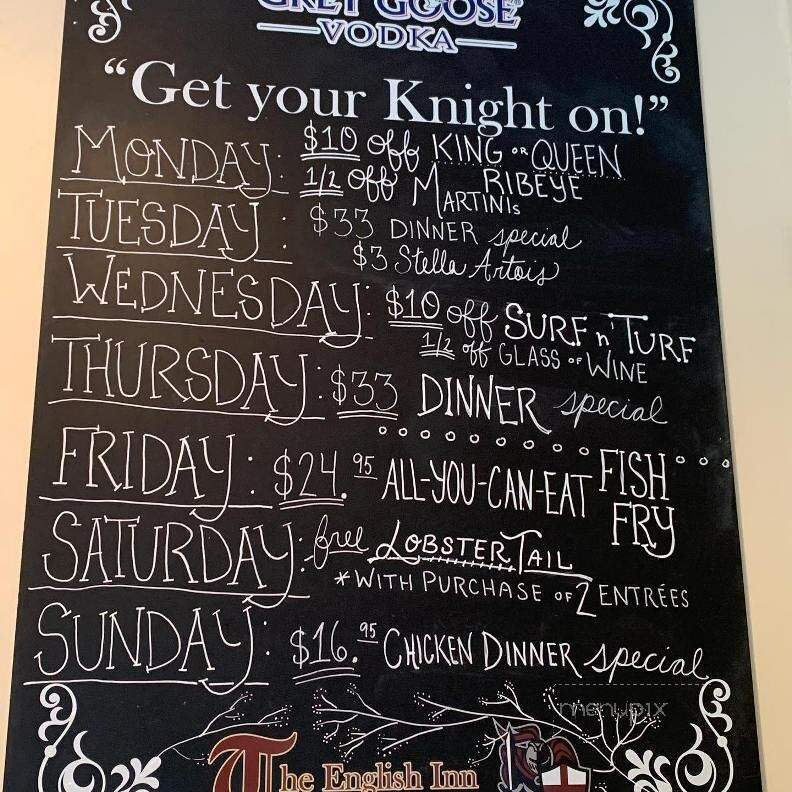 GREY GOOSE
VODKA
“Get your Knight on!”
MONDAY: $10 off KING OR QUEEN
RIBEYE
1/2 off MARTINIS
TUESDAY: $33 DINNER special
$3 Stella Artois
WEDNESDAY: $10 off SURF n' TURF
1/2 off GLASS OF WINE
THURSDAY: $33 DINNER special
FRIDAY: $24.95 ALL-YOU-CAN-EAT FISH
FRY
SATURDAY: free LOBSTER TAIL
*WITH PURCHASE OF 2 ENTRÉES
SUNDAY: $16.95 CHICKEN DINNER special
menupix
The English Inn